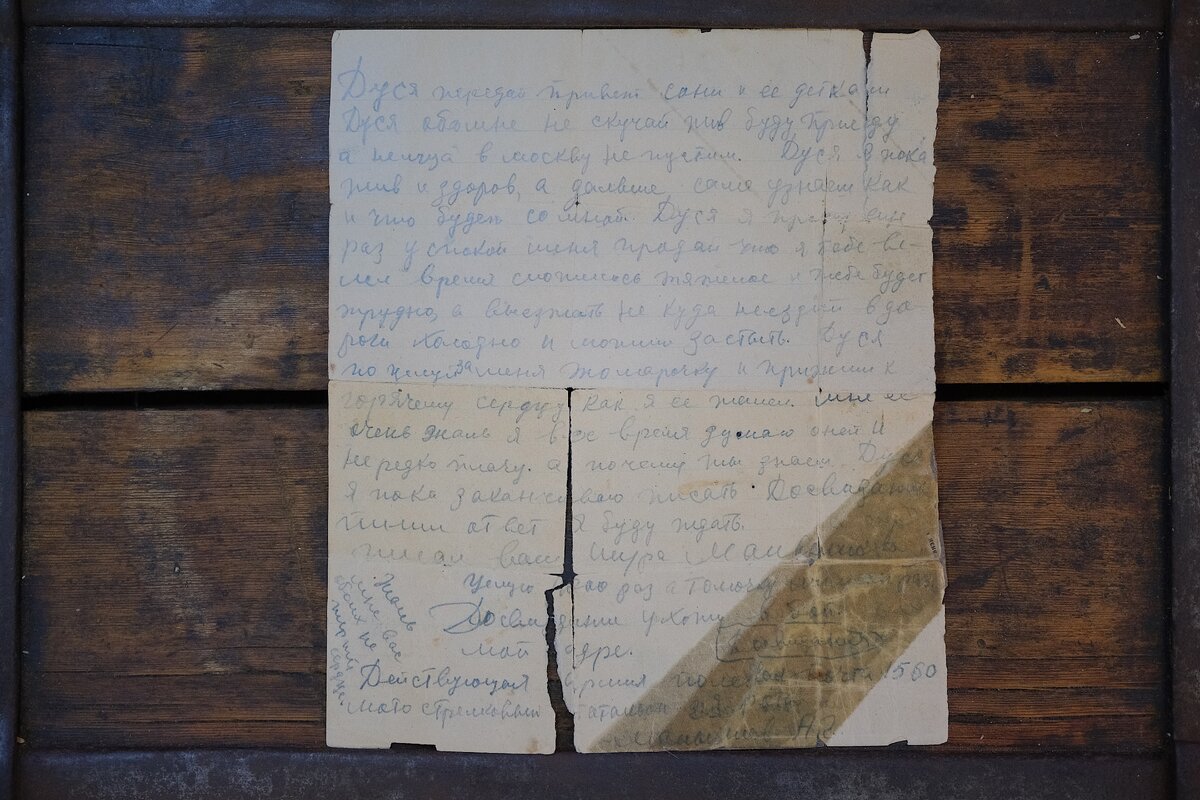 Дуся передай привет сони и ее деткам
Дуся обомне не скучай жив буду приеду
а немца в москву не пустим. Дуся я пока
жив и здоров, а дальше сама узнаеш как
и что будет сомной. Дуся я еще
раз успокой меня продай что я тебе ве-
лел время сложилось тяжелое и тебе будет
трудно, а выезжать не куда неездий вдо
роги холодно и можеш застыть. Дуся
поцелуй за меня Томарочку и прижми к
горячему сердцу как я ее жалел. мне ее
очень жаль я все время думаю оней и
нередко плачу. а почему ты знаеш Дуся
я пока заканчиваю писать Досвидания
пиши ответ я буду ждать.
писал ваш Шура
Целую сто раз а Томочку раз
Досвидания ухожу в бой
мой адрес.
Действующая армия полевая почта 1560
мото стрелковый баталион
Жаль
мне вас
обоих не
сердце.